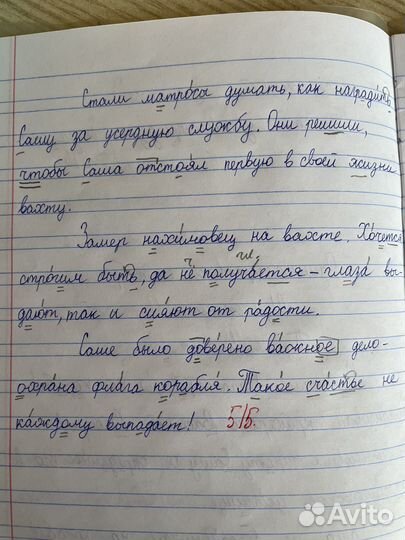 Стали матросы думать, как наградить
Сашу за усердную службу. Они решили,
чтобы Саша отстоял первую в своей жизни
вахту.
Замер нахимовец на вахте. Хочется
ч. гл.
строгим быть, да не получается – глаза вы-
дают, так и сияют от радости.
Саше было доверено важное дело-
охрана флага корабля. Такое счастье не
каждому выпадает! 5/5.
Avito